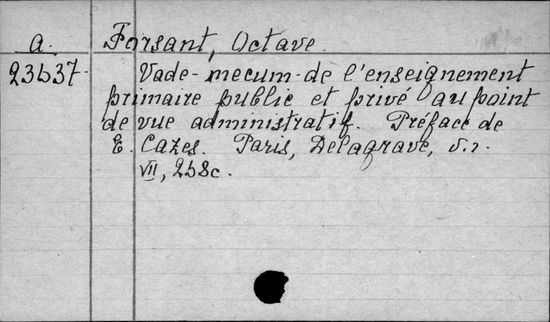 A. Forsant, Octave.
23537. Vade-mecum de l'enseignement
primaire public et privé au point
de vue administratif. Préface de
E. Cazes. Paris, Delagrave, s.a.
VII, 258c.